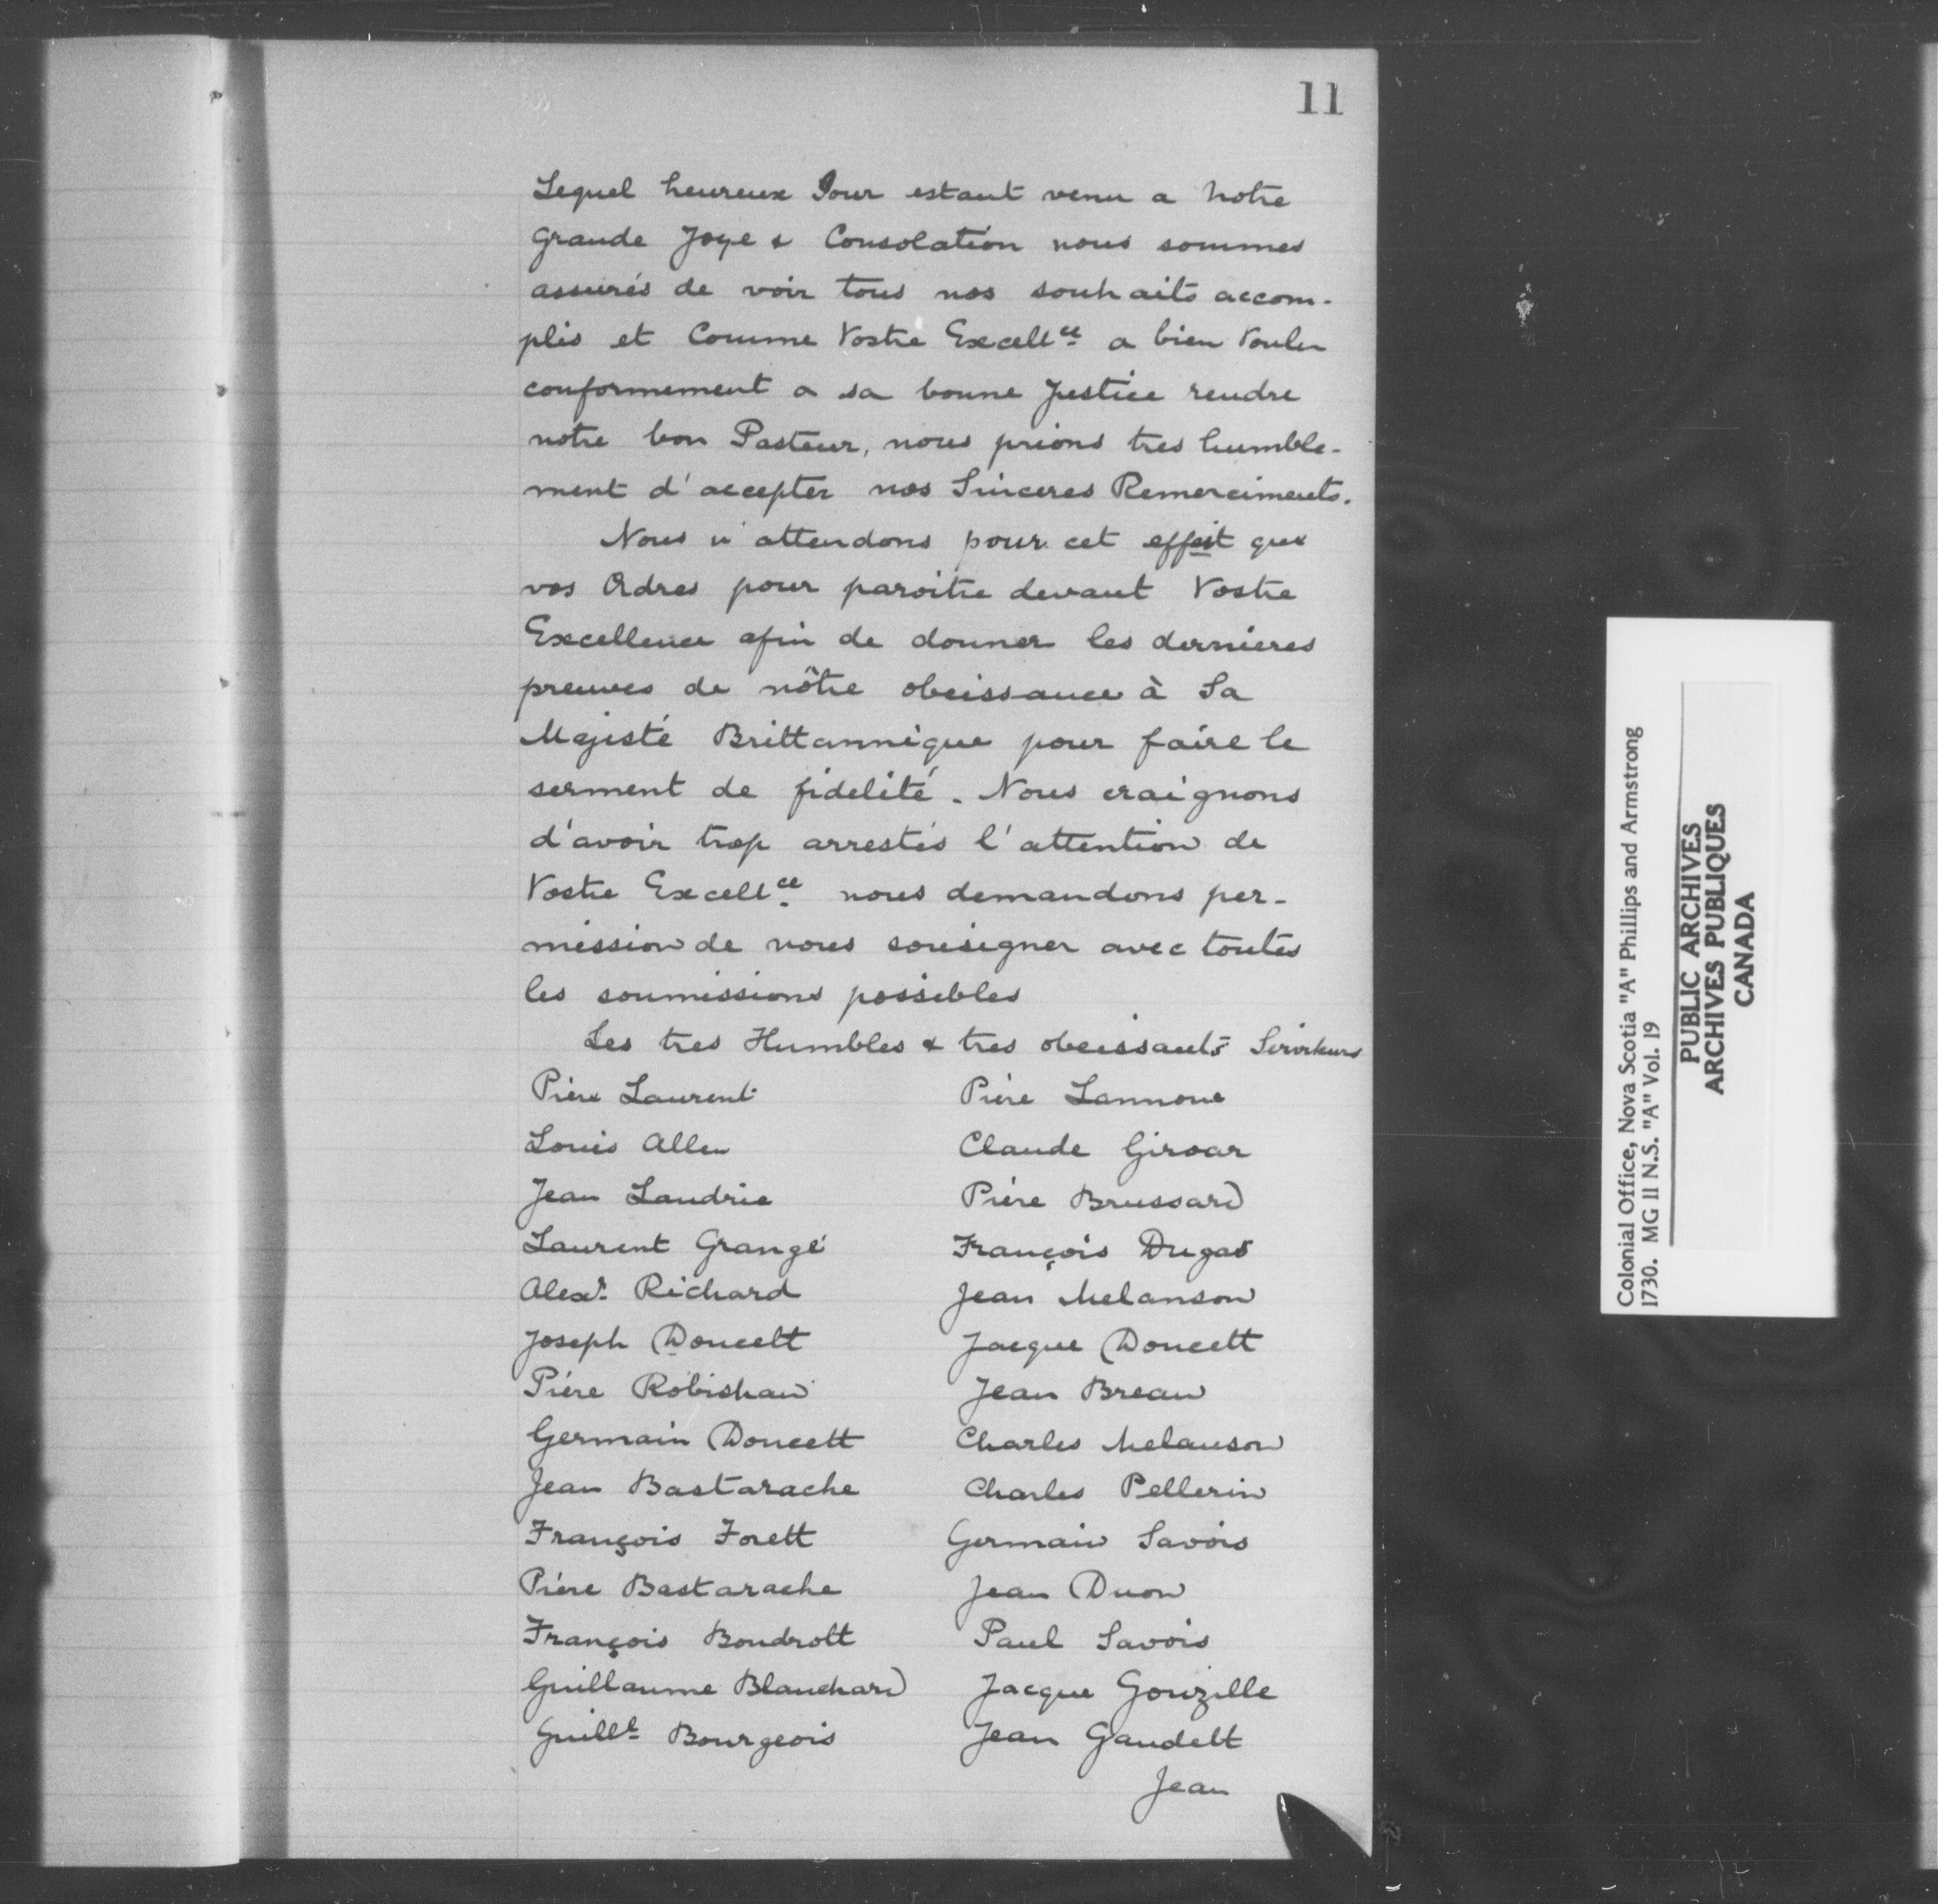 11
Lequel heureux Jour estant venu a Notre
grande Joye & Consolation nous sommes
assurés de voir tous nos souhaits accom-
plis et Comme Vostre Excellce a bien Voulu
conformement a sa bonne Justice rendre
notre bon Pasteur, nous prions tres humble-
ment d'accepter nos Sinceres Remerciments.
Nous n'attendons pour cet effeit que
vos Ordres pour paroitre devant Vostre
Excellence afin de donner les dernieres
preuves de nôtre obeissance à Sa
Majesté Brittannique pour faire le
serment de fidelité. Nous craignons
d'avoir trop arrestés l'attention de
Vostre Excellce nous demandons per-
mission de nous sousigner avec toutes
les soumissions possibles
Les tres Humbles & tres obeissants Serviteurs
Piere Laurent Piere Lannoue
Louis Allen Claude Giroar
Jean Landrie Piere Brussard
Laurent Grangé François Dugas
Alexr. Richard Jean Melanson
Joseph Doucett Jacque Doucett
Piere Robishaw Jean Breau
Germain Doucett Charles Melanson
Jean Bastarache Charles Pellerin
François Forett Germain Savois
Piere Bastarache Jean Duon
François Boudrott Paul Savois
Guillaume Blanchard Jacque Gouzille
Guille Bourgeois Jean Gaudett
Jean
Colonial Office, Nova Scotia "A" Phillips and Armstrong
1730. MG 11 N.S. "A" Vol. 19
PUBLIC ARCHIVES
ARCHIVES PUBLIQUES
CANADA